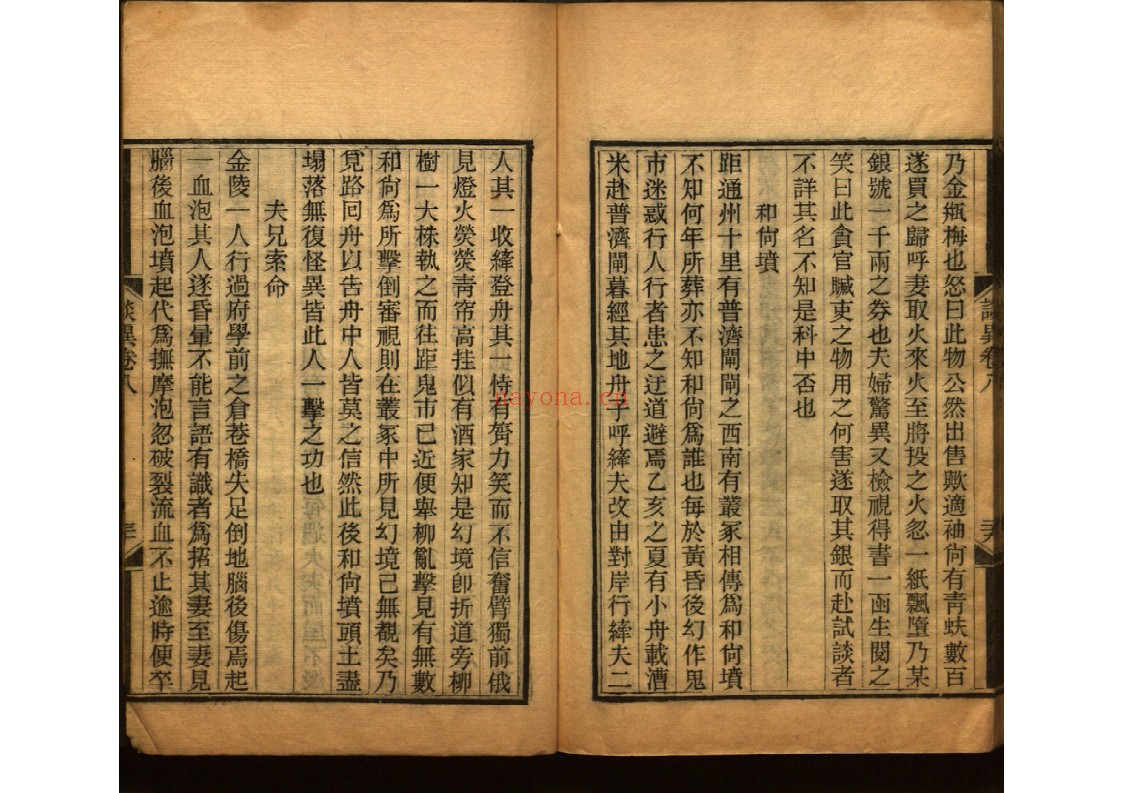 乃金瓶梅也怒曰此物公然出售歟適袖尙有靑蚨數百
遂買之歸呼妻取火來火至將投之火忽一紙飄墮乃某
銀號一千兩之券也夫婦驚異又檢視得書一函生閱之
笑曰此貪官贓吏之物用之何害遂取其銀而赴試談者
不詳其名不知是科中否也
和尙墳
距通州十里有普濟閘閘之西南有叢冢相傳爲和尙墳
不知何年所葬亦不知和尙爲誰也每於黃昏後幻作鬼
市迷惑行人行者患之迂道避焉乙亥之夏有小舟載漕
米赴普濟閘暮經其地舟子呼縴夫改由對岸行縴夫二
人其一收縴登舟其一恃有膂力笑而不信奮臂獨前俄
見燈火熒熒靑帘高挂似有酒家知是幻境卽折道旁柳
樹一大株執之而往距鬼市已近便舉柳亂擊見有無數
和尙爲所擊倒審視則在叢冢中所見幻境已無覩矣乃
覓路回舟以吿舟中人皆莫之信然此後和尙墳頭土盡
塌落無復怪異皆此人一擊之功也
夫兄索命
金陵一人行過府學前之倉巷橋失足倒地腦後傷焉起
一血泡其人遂昏暈不能言語有識者爲招其妻至妻見
腦後血泡墳起代爲撫摩泡忽破裂流血不止逾時便卒
談異卷八
談異卷八